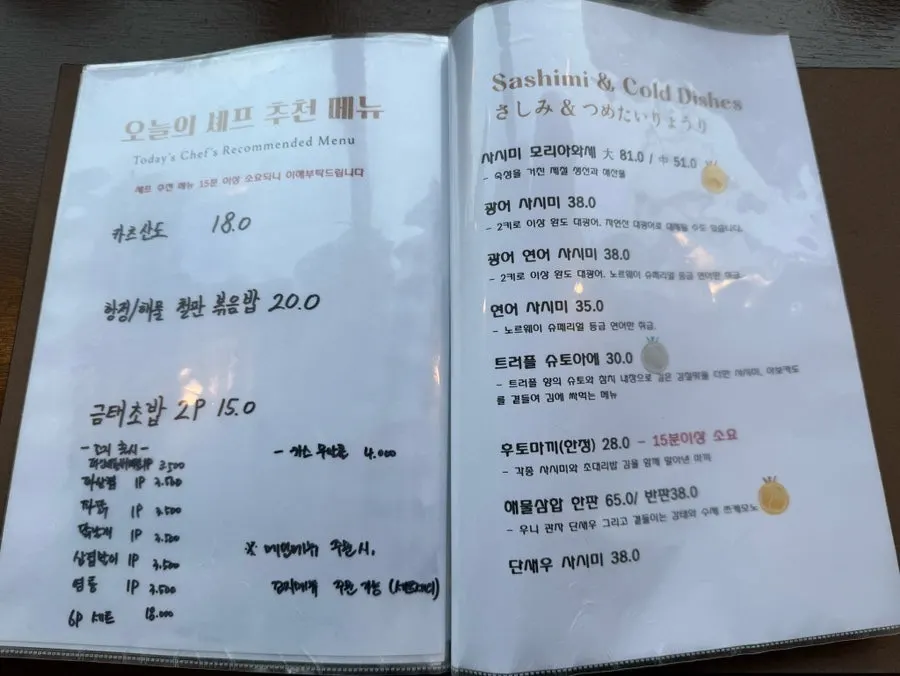 오늘의 셰프 추천 메뉴
Today's Chef's Recommended Menu
셰프 추천 메뉴 15분 이상 소요되니 이해부탁드립니다
카츠산도 18.0
항정/해물 철판 볶음밥 20.0
금태초밥 2P 15.0
1P 3.500
파삼겹 1P 3.500
1P 3.500
1P 3.500
삼겹말이 1P 3.500
염통 1P 3.500
6P 세트 18.000
4.000
※ 메인메뉴 주문 시,
주문 가능
Sashimi & Cold Dishes
さしみ & つめたいりょうり
사시미 모리아와세 大 81.0 / 中 51.0
- 숙성을 거친 제철 생선과 해산물
광어 사시미 38.0
- 2키로 이상 완도 대광어, 자연산 대광어로 대체될 수도 있습니다.
광어 연어 사시미 38.0
- 2키로 이상 완도 대광어, 노르웨이 슈페리얼 등급 연어만 취급
연어 사시미 35.0
- 노르웨이 슈페리얼 등급 연어만 취급
트러플 슈토아에 30.0
- 트러플 향의 슈토와 참치 내장으로 감칠맛을 더한 사시미, 아보카도
를 곁들여 김에 싸먹는 메뉴
후토마끼(한정) 28.0 - 15분이상 소요
- 각종 사시미와 초대리밥 김을 함께 말아낸 마끼
해물삼합 한판 65.0/ 반판38.0
- 우니 관자 단새우 그리고 곁들이는 감태와 수제 쯔케모노
단새우 사시미 38.0